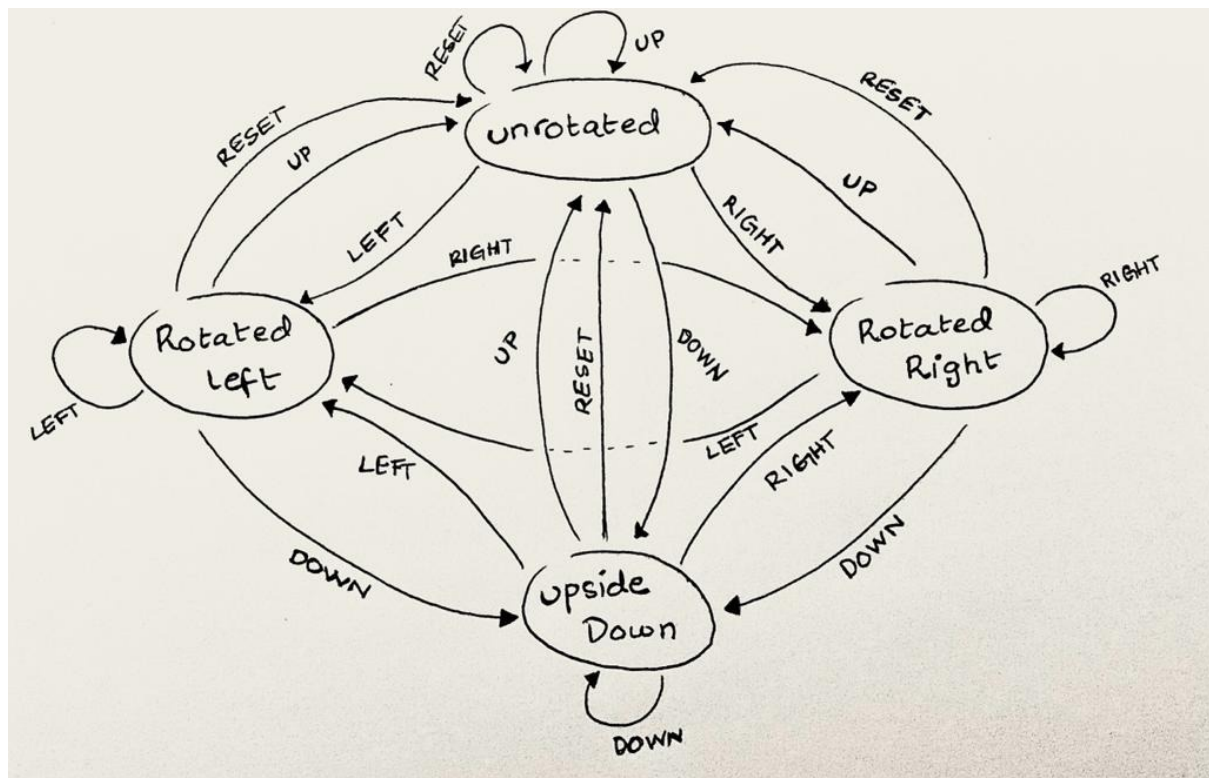 RESET
UP
RESET
unrotated
RESET
UP
UP
LEFT
RIGHT
RIGHT
RIGHT
Rotated
Left
UP
RESET
DOWN
Rotated
Right
LEFT
LEFT
LEFT
RIGHT
DOWN
DOWN
upside
Down
DOWN